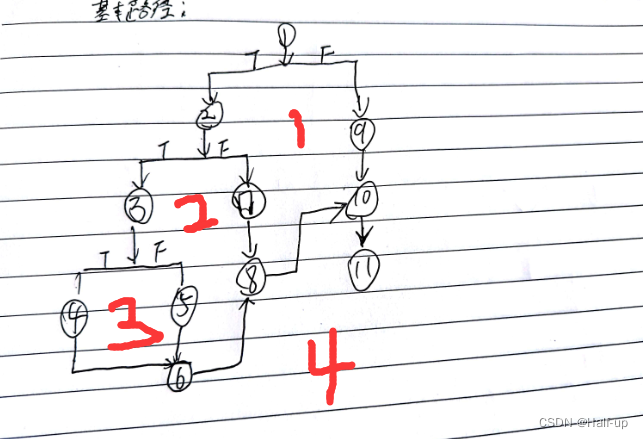 基本路径:
1
T F
2
1
9
T F
3
2
7
10
T F
8
11
4
3
5
6
4
CSDN @Half-up